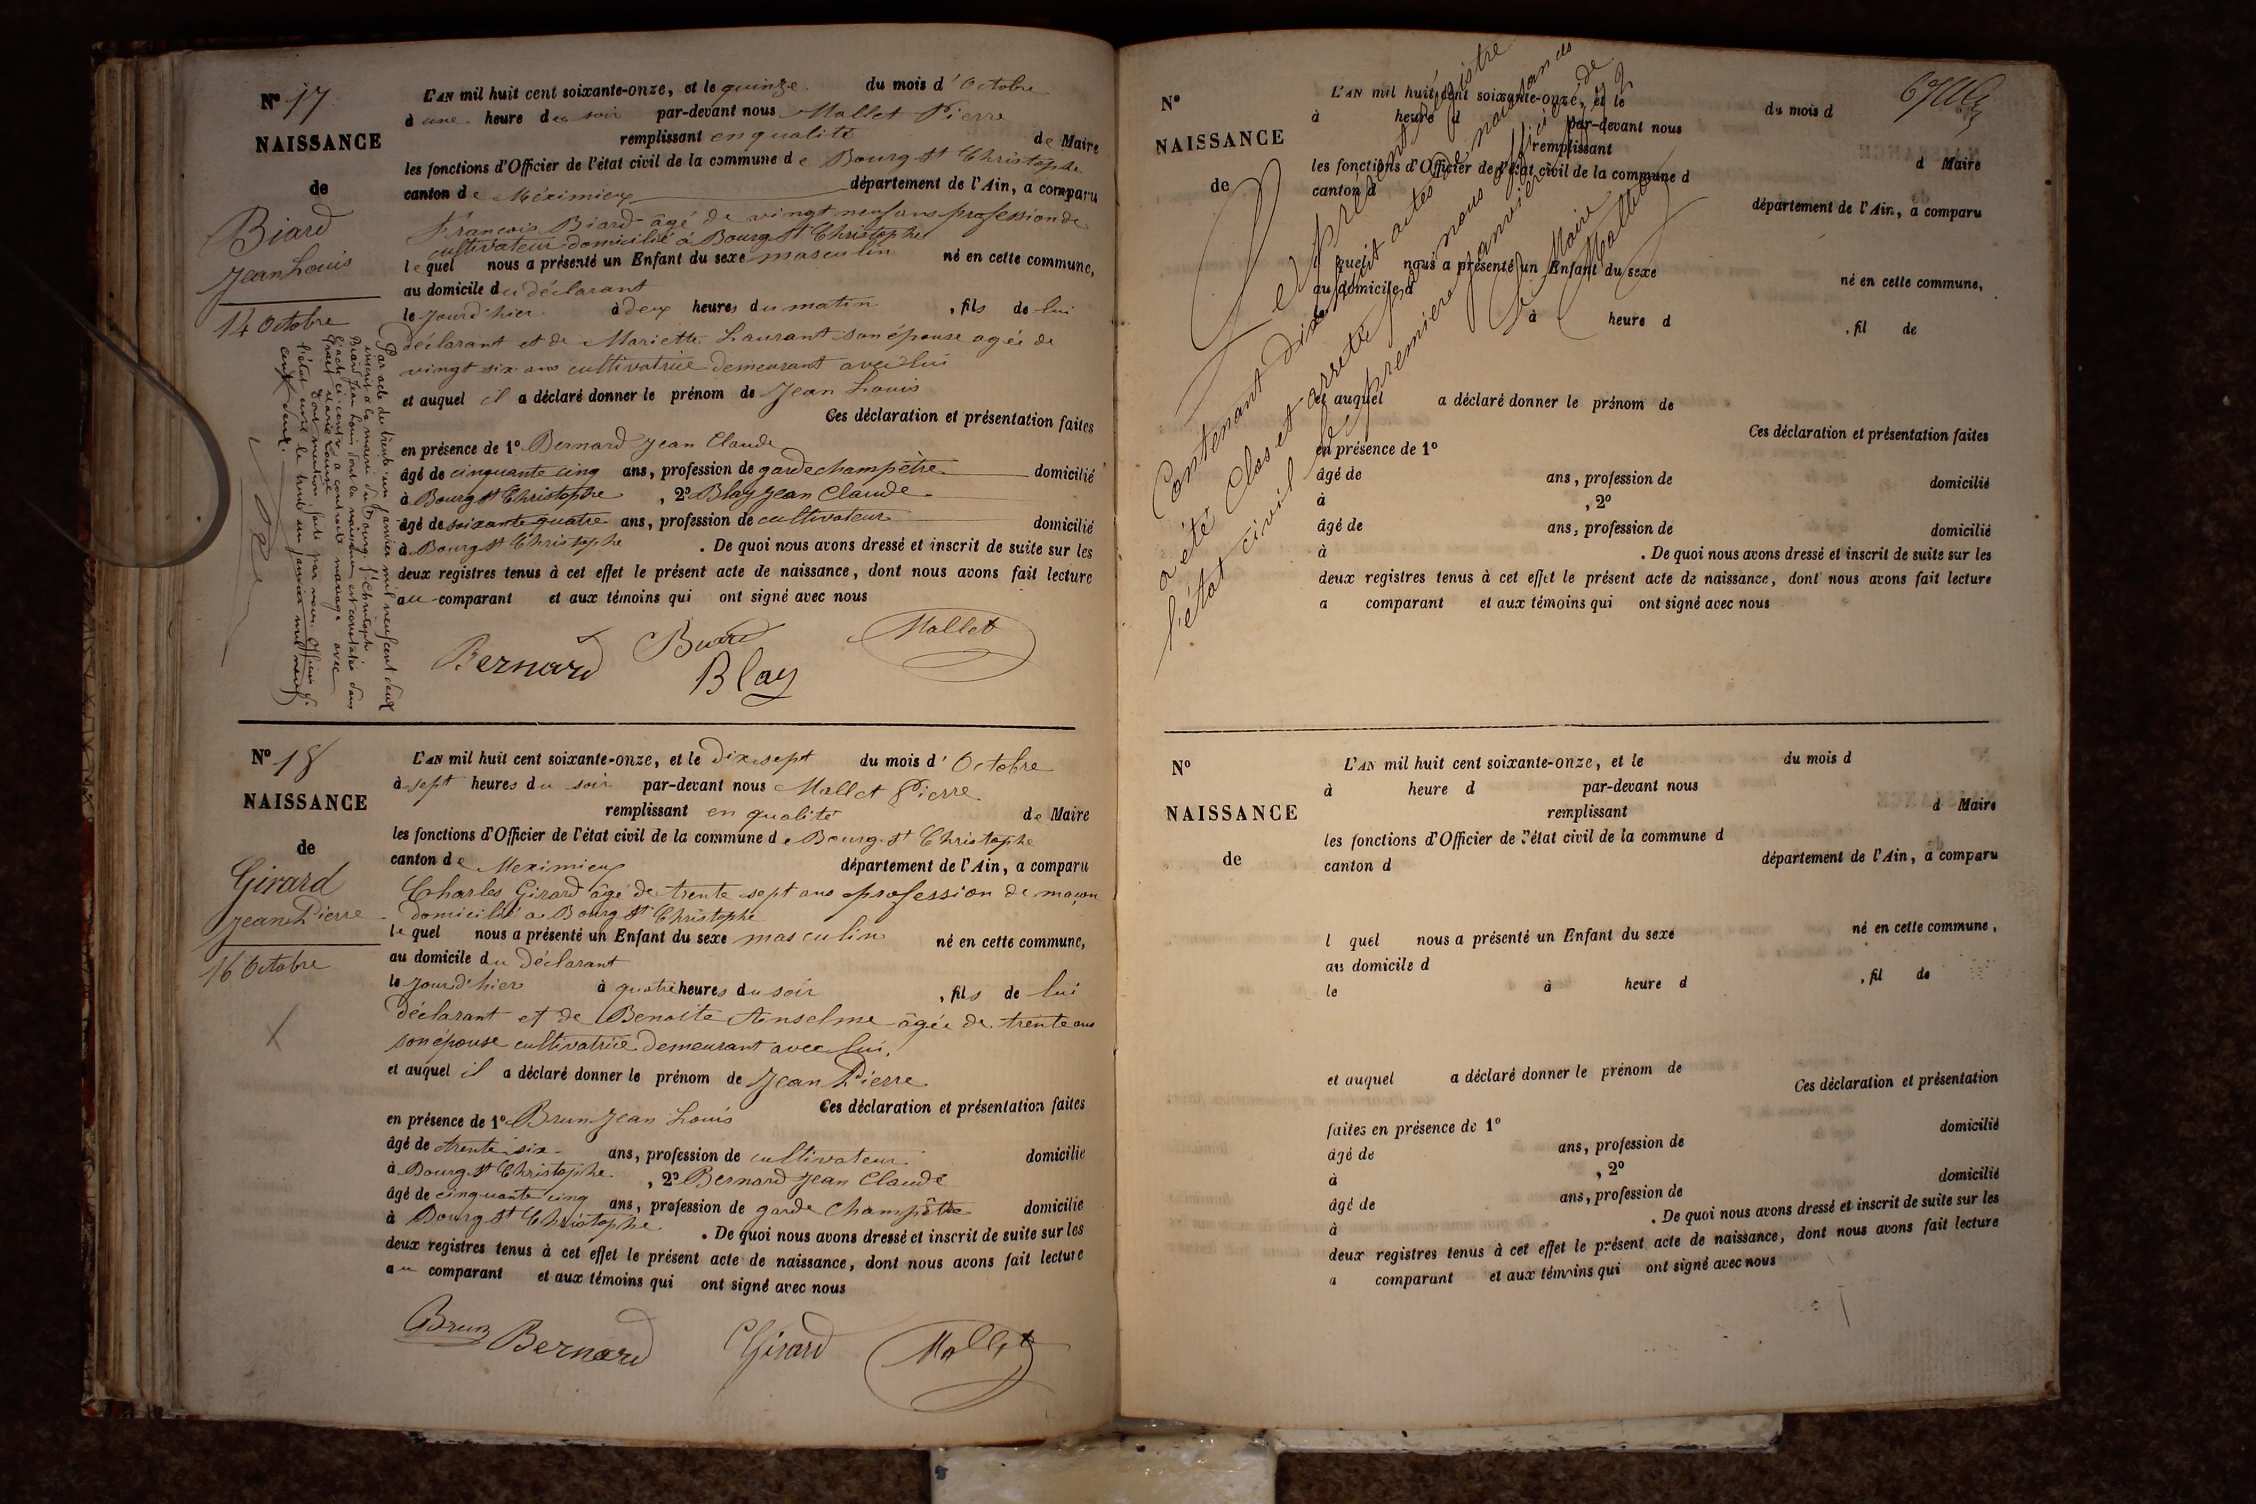 N° 17
NAISSANCE
de
Biard
Jean Louis
14 Octobre
L'AN mil huit cent soixante-onze, et le quinze du mois d'Octobre
à une heure du soir par-devant nous Mallet Pierre
remplissant en qualité de Maire
les fonctions d'Officier de l'état civil de la commune de Bourg St Christophe
canton de Méximieux département de l'Ain, a comparu
François Biard âgé de vingt neuf ans profession de
cultivateur domicilié à Bourg St Christophe
lequel nous a présenté un Enfant du sexe masculin né en cette commune,
au domicile du déclarant
le jour d'hier à deux heures du matin, fils de lui
déclarant et de Mariette Laurant son épouse agée de
vingt six ans cultivatrice demeurant avec lui
et auquel il a déclaré donner le prénom de Jean Louis
Ces déclaration et présentation faites
en présence de 1° Bernard Jean Claude
âgé de cinquante cinq ans, profession de garde champètre domicilié
à Bourg St Christophe, 2° Blay Jean Claude
âgé de soixante quatre ans, profession de cultivateur domicilié
à Bourg St Christophe. De quoi nous avons dressé et inscrit de suite sur les
deux registres tenus à cet effet le présent acte de naissance, dont nous avons fait lecture
au comparant et aux témoins qui ont signé avec nous
Bernard Biard Blay Mallet
Par acte du trente un janvier mil neuf cent deux
inscrit à la mairie du Bourg St Christophe
Biard Jean Louis dont la naissance est constatée dans
l'acte ci contre a contracté mariage avec
Marie Louise
Dont mention faite par nous Officier de
l'état civil le trente un janvier mil neuf
cent deux.
N° 18
NAISSANCE
de
Girard
Jean Pierre
16 Octobre
L'AN mil huit cent soixante-onze, et le dix sept du mois d'Octobre
à sept heures du soir par-devant nous Mallet Pierre
remplissant en qualité de Maire
les fonctions d'Officier de l'état civil de la commune de Bourg St Christophe
canton de Meximieux département de l'Ain, a comparu
Charles Girard âgé de trente sept ans profession de maçon
domicilié a Bourg St Christophe
lequel nous a présenté un Enfant du sexe masculin né en cette commune,
au domicile du déclarant
le jour d'hier à quatre heures du soir, fils de lui
déclarant et de Benoite Anselme âgée de trente ans
son épouse cultivatrice demeurant avec lui,
et auquel il a déclaré donner le prénom de Jean Pierre
Ces déclaration et présentation faites
en présence de 1° Brun Jean Louis
âgé de trente six ans, profession de cultivateur domicilié
à Bourg St Christophe, 2° Bernard Jean Claude
âgé de cinquante cinq ans, profession de garde champêtre domicilié
à Bourg St Christophe. De quoi nous avons dressé et inscrit de suite sur les
deux registres tenus à cet effet le présent acte de naissance, dont nous avons fait lecture
au comparant et aux témoins qui ont signé avec nous
Brun Bernard CGirard Mallet
N°
NAISSANCE
de
L'AN mil huit cent soixante-onze, et le du mois d
à heure d par-devant nous
remplissant d Maire
les fonctions d'Officier de l'état civil de la commune d
canton d département de l'Ain, a comparu
l quel nous a présenté un Enfant du sexe né en cette commune,
au domicile d
le à heure d, fil de
et auquel a déclaré donner le prénom de
Ces déclaration et présentation faites
en présence de 1°
âgé de ans, profession de domicilié
à , 2°
âgé de ans, profession de domicilié
à . De quoi nous avons dressé et inscrit de suite sur les
deux registres tenus à cet effet le présent acte de naissance, dont nous avons fait lecture
a comparant et aux témoins qui ont signé avec nous
Le présent registre
Contenant dix huit actes de naissances
a été Clos et arrêté par nous officier de
l'état civil le premier janvier
Le Maire
Mallet
N°
NAISSANCE
de
L'AN mil huit cent soixante-onze, et le du mois d
à heure d par-devant nous
remplissant d Maire
les fonctions d'Officier de l'état civil de la commune d
canton d département de l'Ain, a comparu
l quel nous a présenté un Enfant du sexe né en cette commune,
au domicile d
le à heure d, fil de
et auquel a déclaré donner le prénom de
Ces déclaration et présentation
faites en présence de 1°
âgé de ans, profession de domicilié
à , 2°
âgé de ans, profession de domicilié
à . De quoi nous avons dressé et inscrit de suite sur les
deux registres tenus à cet effet le présent acte de naissance, dont nous avons fait lecture
a comparant et aux témoins qui ont signé avec nous